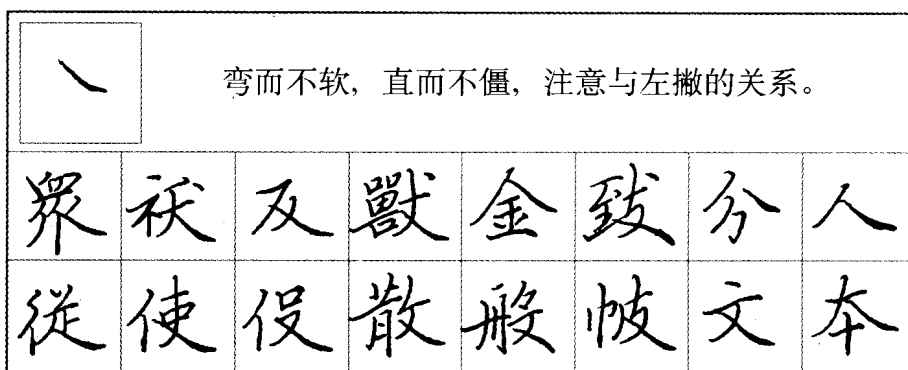 弯而不软，直而不僵，注意与左撇的关系。
眾 反 獸 金 致 分 人
從 使 散 般 帔 文 本